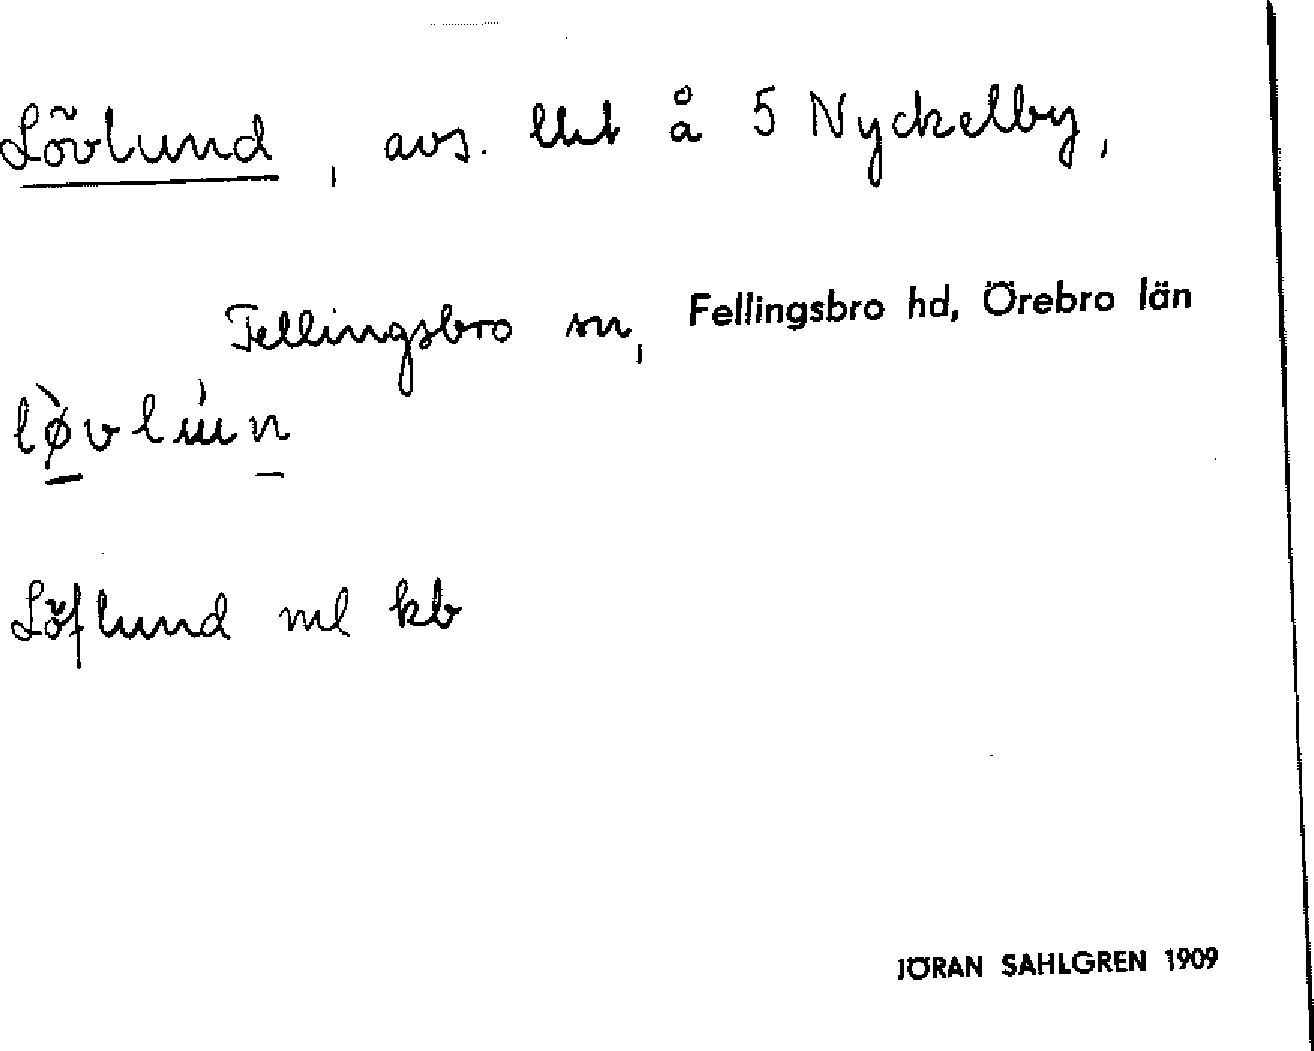 Lövlund, avs. lht å 5 Nyckelby,
Fellingsbro sn, Fellingsbro hd, Örebro län
lø̀vlɯ́n
Löflund ml kb
JÖRAN SAHLGREN 1909